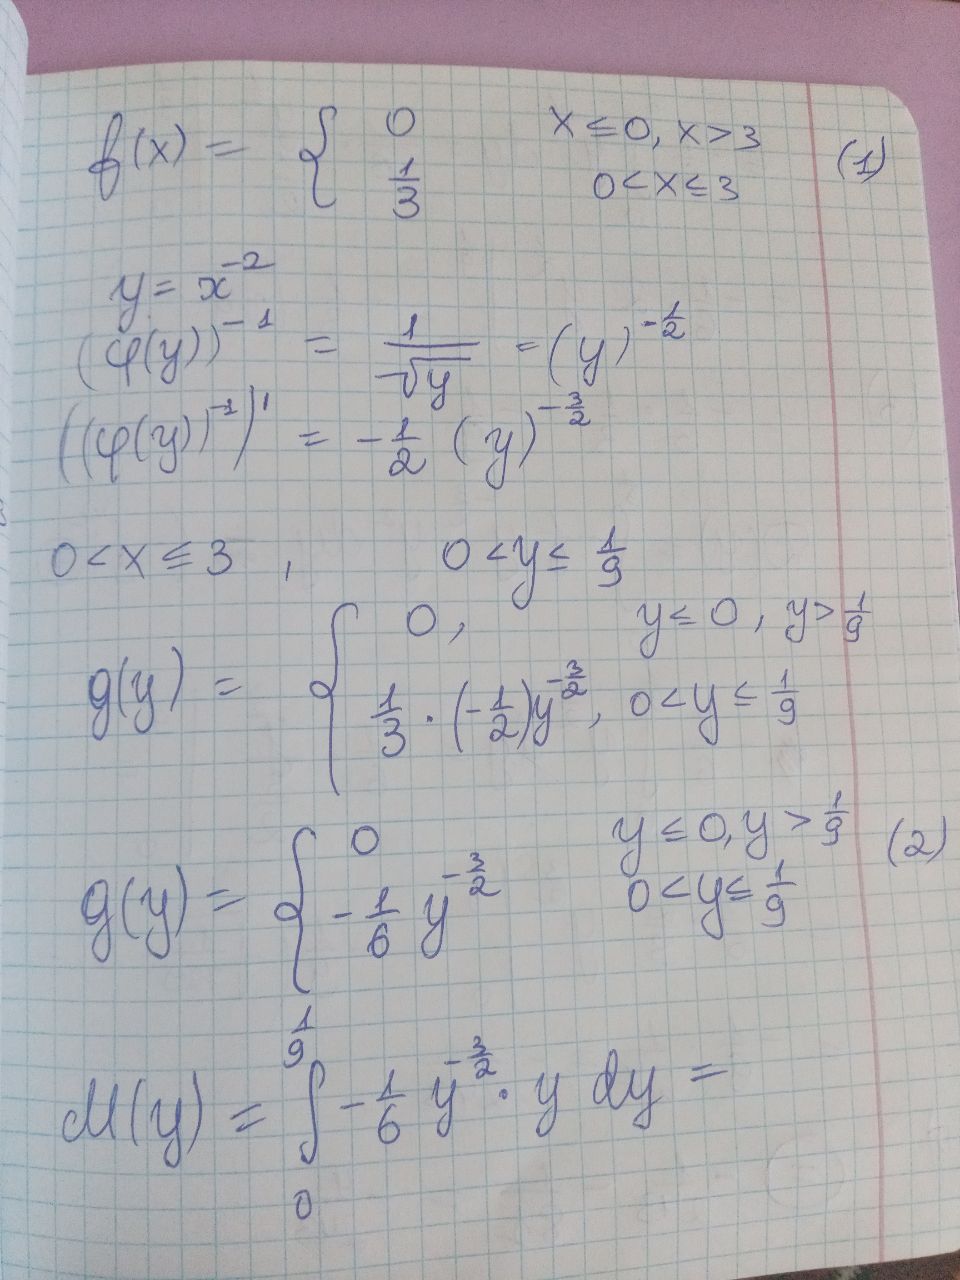 f(x) = { 0 x ≤ 0, x > 3
1/3 0 < x ≤ 3 (1)
y = x^{-2}
(φ(y))^{-1} = 1/√y = (y)^{-1/2}
((φ(y))^{-1})' = -1/2 (y)^{-3/2}
0 < x ≤ 3 , 0 < y ≤ 1/9
g(y) = { 0, y ≤ 0, y > 1/9
1/3 · (-1/2) y^{-3/2}, 0 < y ≤ 1/9
g(y) = { 0 y ≤ 0, y > 1/9 (2)
-1/6 y^{-3/2} 0 < y ≤ 1/9
M(y) = ∫_0^{1/9} -1/6 y^{-3/2} · y dy =